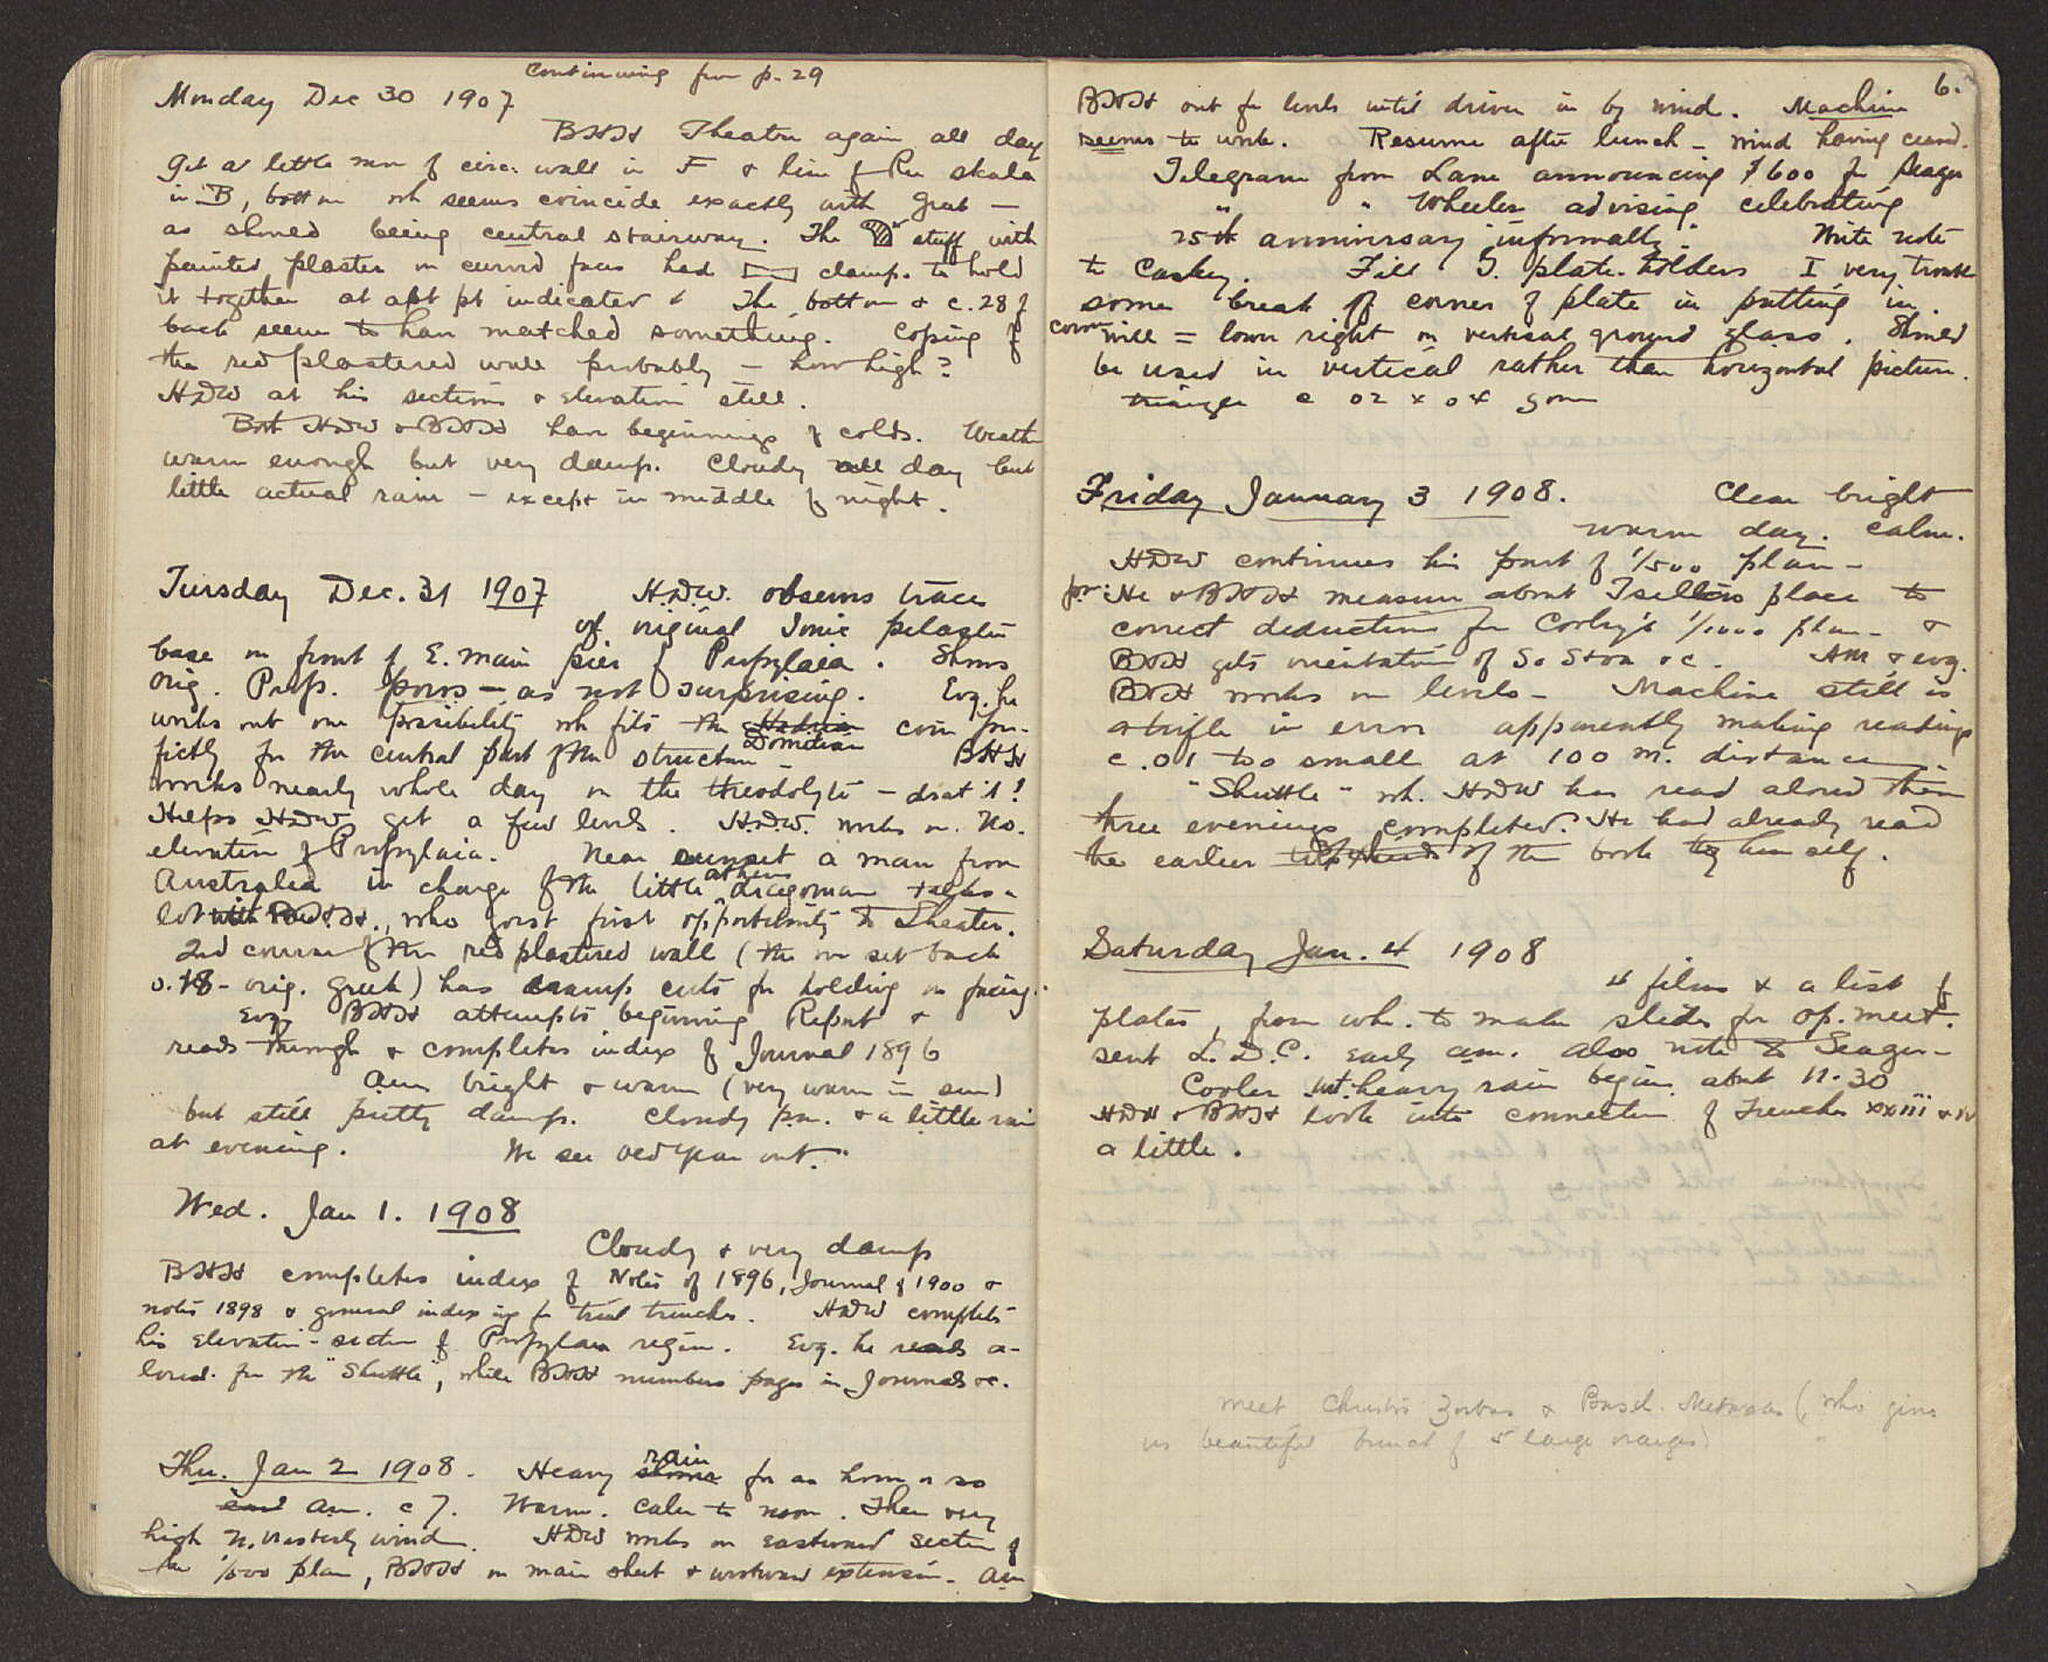 Continuing from p. 29
Monday Dec 30 1907
BHH Theatre again all day
Get a little more of circ. wall in F & line of Rm skala
in B, bottom wh seems coincide exactly with great —
as showed being central stairway. The stuff with
painted plaster on curved faces had clamps to hold
it together at apt pt indicated & The bottom & c. 28 of
back seem to have matched something. Coping of
the red plastered wall probably — how high?
HDW at his sections & elevation still.
Both HDW & BHH have beginnings of colds. Weather
warm enough but very damp. Cloudy all day but
little actual rain — except in middle of night.
Tuesday Dec. 31 1907 H.D.W. observes traces
of original Ionic pilaster
base on front of E. main pier of Propylaia. Shows
orig. Prop. poros — as not surprising. Evg. he
works out one possibility wh fits the Hadrian Domitian coin per-
fectly for the central part of the structure — BHH
works nearly whole day on the theodolyte — drat it!
Helps HDW get a few levels. H.D.W. works on No.
elevation of Propylaia. Near sunset a man from
Australia in charge of the little Athens dragoman talks a
lot with BHH., who goest first opportunity to Theater.
2nd course of the red plastered wall (the one set back
0.18 - orig. Greek) has clamp cuts for holding on facing.
Evg BHH attempts beginning Report &
reads through & completes index of Journal 1896
Am bright & warm (very warm in sun)
but still pretty damp. Cloudy p.m. & a little rain
at evening. We see Old Year out.
Wed. Jan 1. 1908
Cloudy & very damp
BHH completes index of Notes of 1896, Journal of 1900 &
notes 1898 & general index ing for trial trenches. HDW completes
his elevation-section of Propylaea region. Evg. he reads a-
loud from the "Shuttle", while BHH numbers pages in Journals &c.
Thu. Jan 2 1908. Heavy rain for an hour or so
am. c 7. Warm. Calm to noon. Then very
high N. westerly wind. HDW works on eastward section of
the 1/500 plan, BHH on main sheet & westward extension. Am
6.
BHH out for levels until driven in by wind. Machine
seems to work. Resume after lunch — wind having ceased.
Telegram from Lane announcing $600 for Seager
" " Wheeler advising celebrating
25th anniversary "informally." Write note
to Caskey. Fill 5. plate-holders I very trouble
some break off corner of plate in putting in
corner will = lower right on vertical ground glass. Should
be used in vertical rather than horizontal picture.
triangle c 02 x 04 gone
Friday January 3 1908. Clear bright
warm day. Calm.
HDW continues his part of 1/500 plan —
pm: He & BHH measure about Tsellios place to
correct deductions for Corley's 1/1000 plan — &
BHH gets orientation of So Stoa &c. AM & evg.
BHH works on levels — Machine still is
a trifle in error apparently making readings
c .01 too small at 100 m. distance —
"Shuttle" wh. HDW has read aloud these
three evenings completed. He had already read
the earlier of the book to himself.
Saturday Jan. 4 1908
4 films & a list of
plates, from wh. to make slides for op. meet.
sent L.D.C. early am. Also note to Seager —
Cooler wt. heavy rain begin about 11.30
HDW & BHH look into connection of Trenches xxiii & iv
a little.
meet Christos Zorbas & Basil. Metaxas (who gives
us beautiful bunch of 5 large oranges)